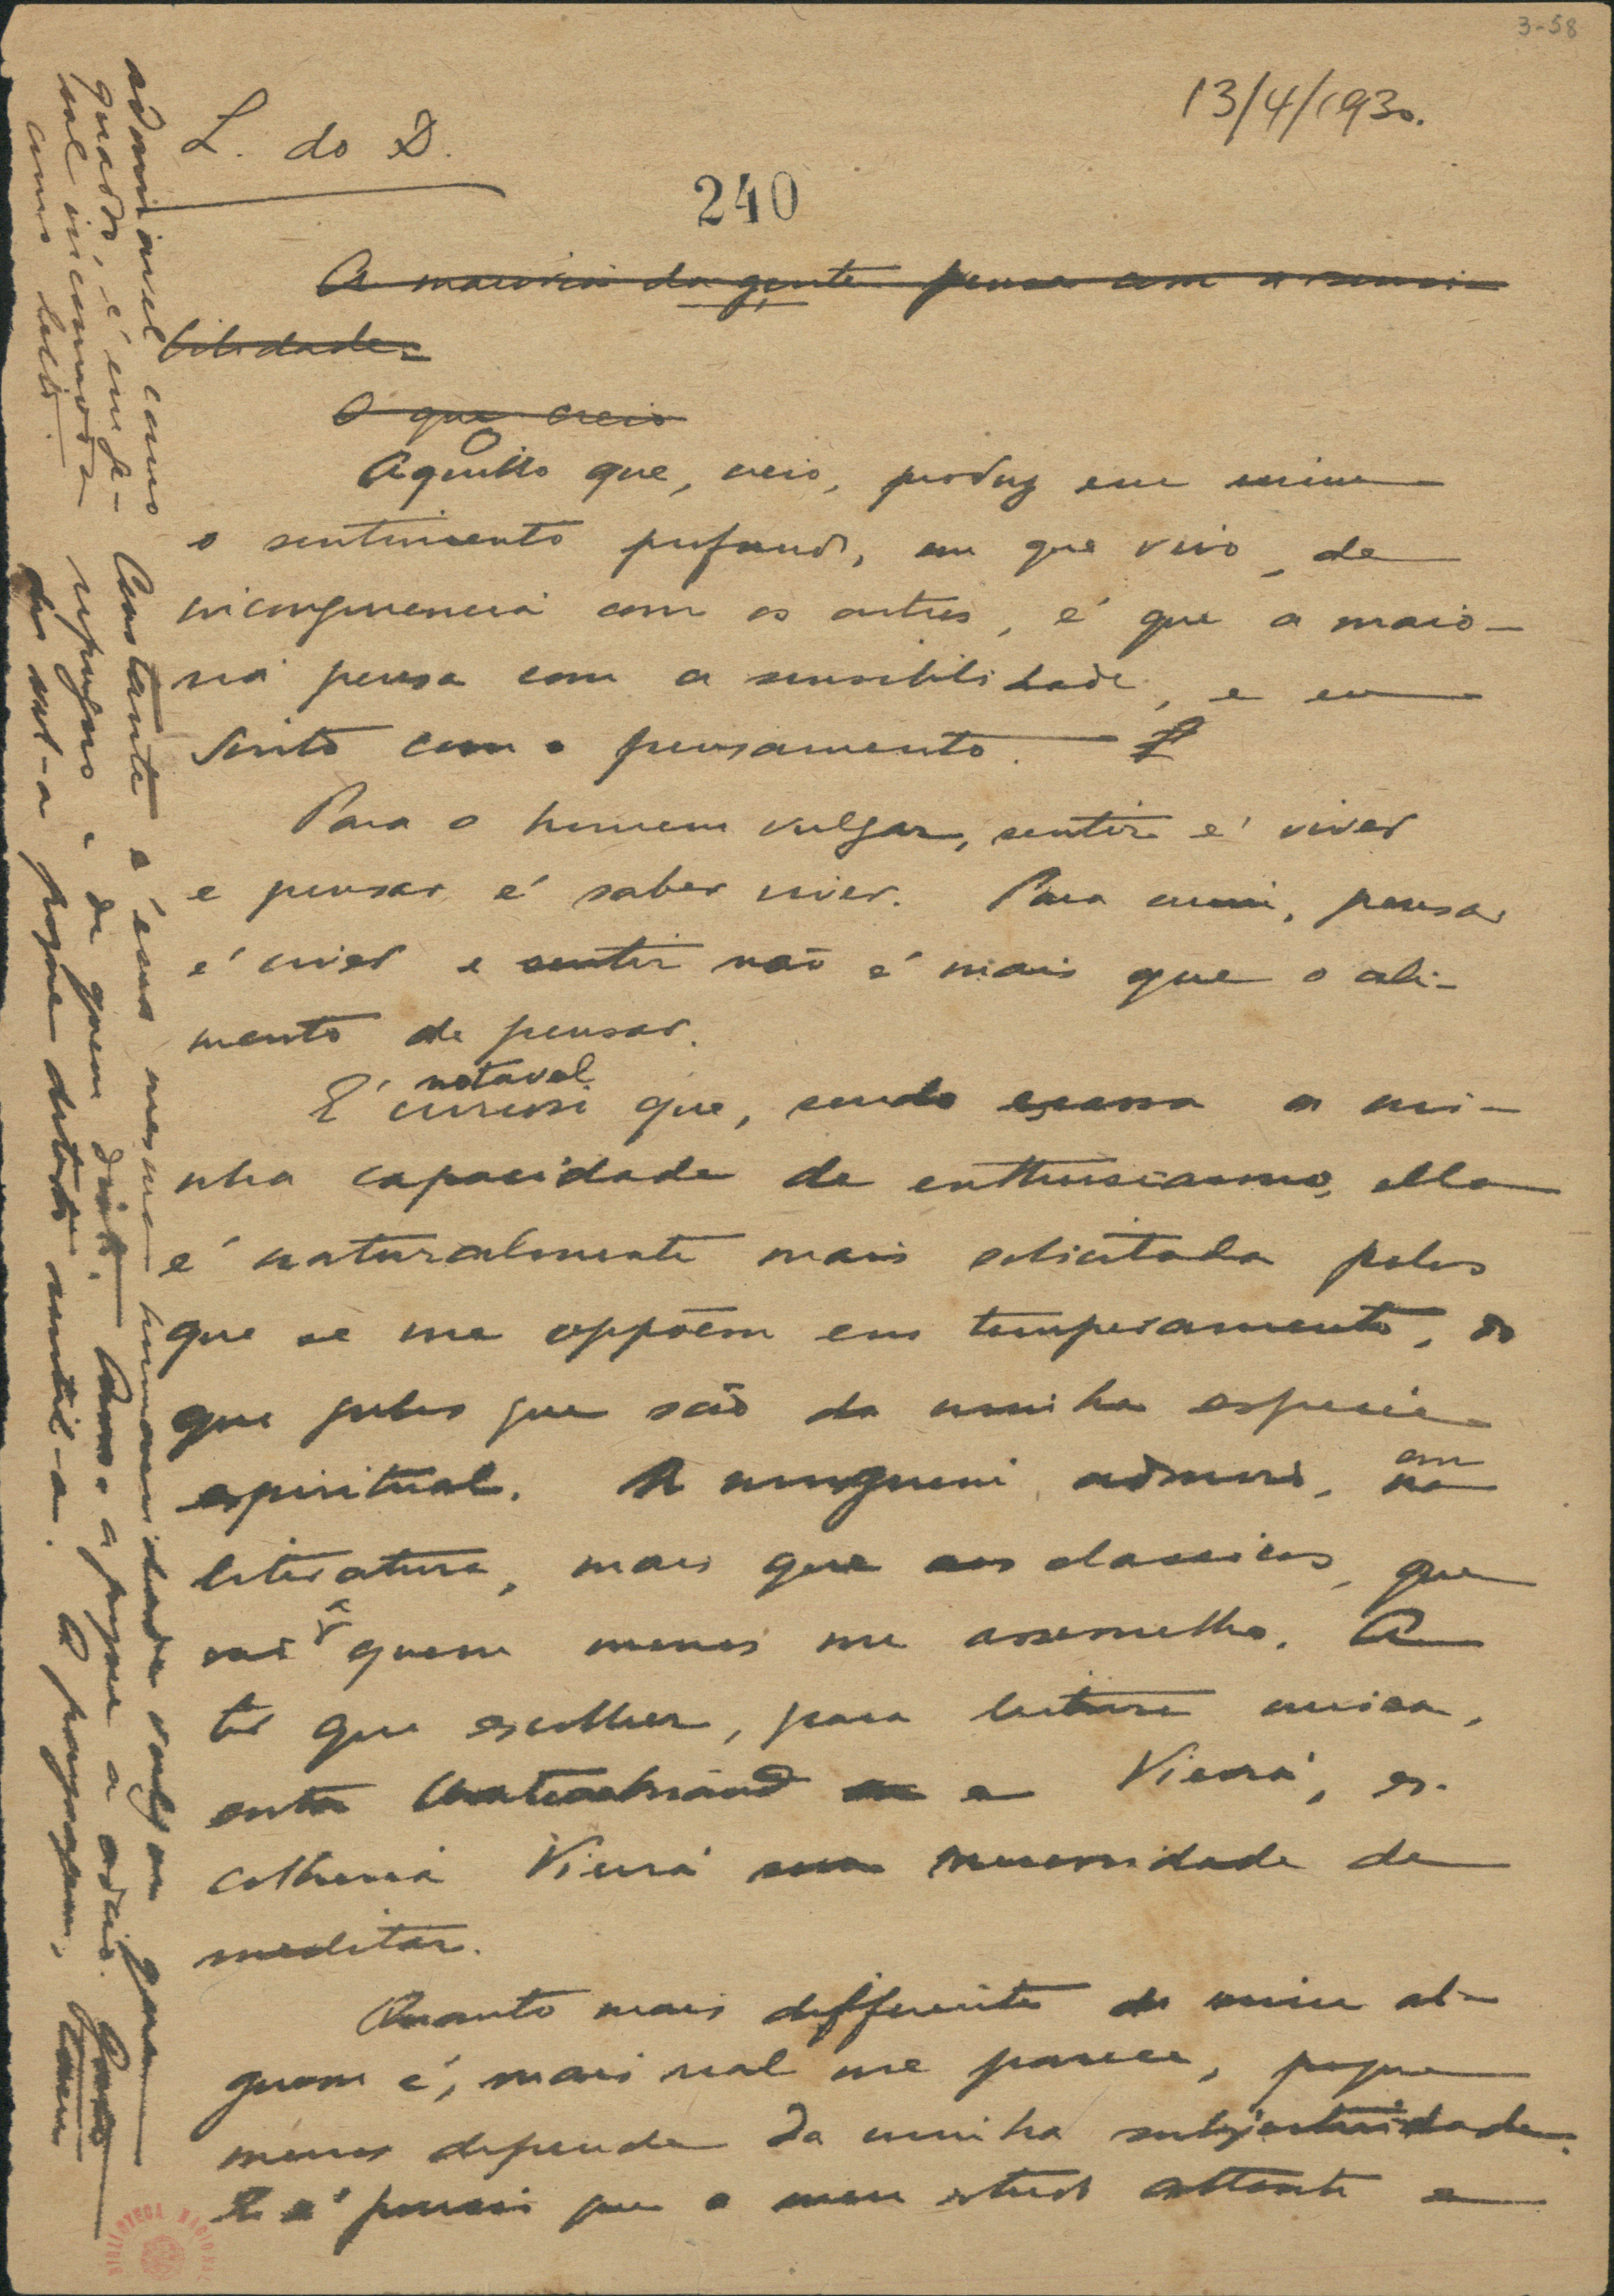 3-58
13/4/1930.
L. do D.
240
A maioria da gente pensa com a sensi-
bilidade.
O que creio
O
Aquillo que, creio, produz em mim
o sentimento profundo, em que vivo, de
incongruencia com os outros, é que a maio-
ria pensa com a sensibilidade, e eu
sinto com o pensamento.
Para o homem vulgar, sentir é viver
e pensar é saber viver. Para mim, pensar
é viver e sentir não é mais que o ali-
mento de pensar.
notavel
É curioso que, sendo escassa a mi-
nha capacidade de enthusiasmo, ella
é naturalmente mais solicitada pelos
que se me oppõem em temperamento, do
que pelos que são da minha especie
espiritual. A ninguem admiro, na
em
literatura, mais que aos classicos, que
são a quem menos me assemelho. A
ter que escolher, para leitura unica,
entre Chateaubriand e Vieira, es-
colheria Vieira sem necessidade de
meditar.
Quanto mais differente de mim al-
guem é, mais real me parece, porque
menos depende da minha subjectividade.
E é por isso que o meu estudo attento e
constante é essa mesma humanidade vulgar que
repugno e de quem disto. Amo-a porque a odeio. Gosto
de vel-a porque detesto sentil-a. A paisagem, tam
admiravel como
quadro, é em ge-
ral incommoda
como leito.
BIBLIOTECA NACIONAL